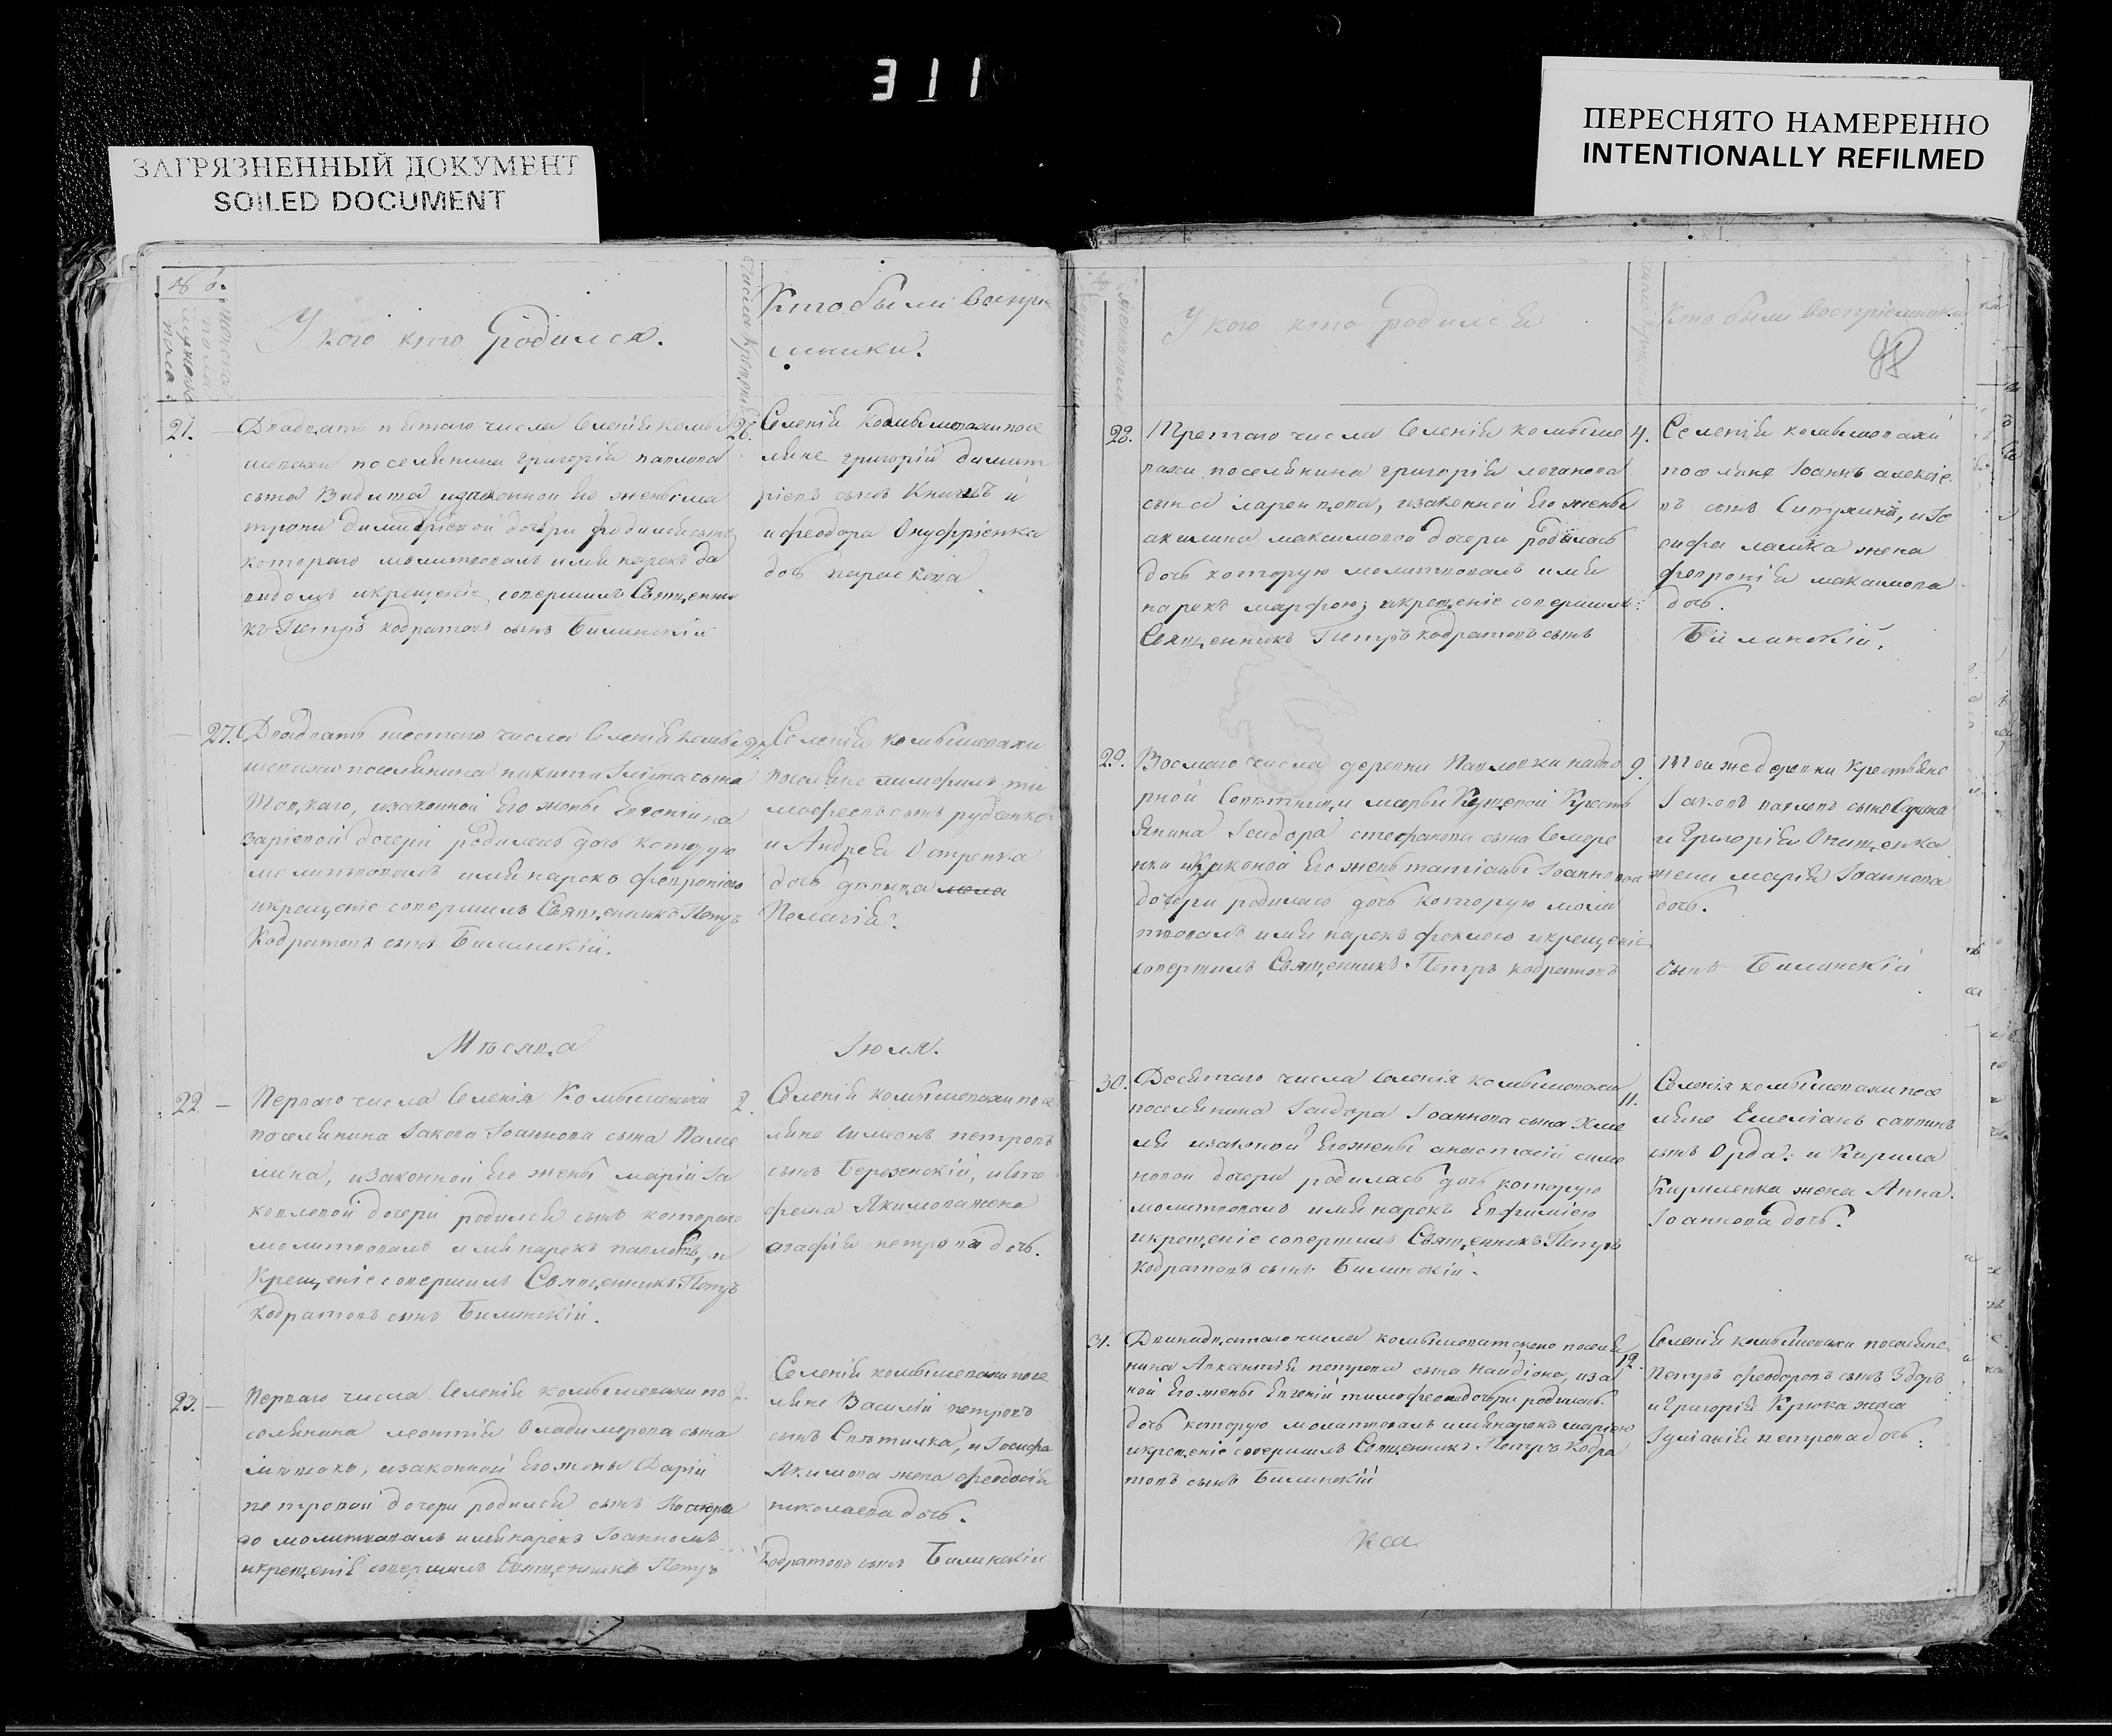 311
ЗАГРЯЗНЕННЫЙ ДОКУМЕНТ
SOILED DOCUMENT
ПЕРЕСНЯТО НАМЕРЕННО
INTENTIONALLY REFILMED
У кого кто родился.
Кто были воспри
мники.
21.
Двадцать пятаго числа Селенія Комы
26.
шевахи поселянина григорія павлова
сына изаконной Его жены ма
троны димитріевой дочери родился сынъ
котораго молитвовалъ имя нарекъ да
видомъ икрещеніе совершилъ Священни
къ Петръ кодратовъ сынъ Билинскій
Селенія Комышовахи посе
ляне григорій димит
ріевъ сынъ и
и феодора Онуфріенка
дочь параскева
27.
Двадцать шестаго числа Селенія Комы
шовахи поселянина никиты сына
изаконной Его жены Евгеніи на
заріевой дочери родилась дочь которую
молитвовалъ имя нарекъ февроніею
икрещеніе совершилъ Священникъ Петръ
Кодратовъ сынъ Билинскій.
Селенія комышовахи
поселяне ти
мофеевъ сынъ рудченко
и Андрея Остренка
дочь девица
Пелагія.
Мѣсяца
Іюля.
22
Перваго числа Селенія Комышевахи
2.
поселянина Іакова Іоаннова сына
изаконной Его жены маріи Іа
ковлевой дочери родился сынъ котораго
молитвовалъ имя нарекъ павломъ, и
Крещеніе совершилъ Священникъ Петръ
Кодратовъ сынъ Билинскій.
Селенія комышовахи посе
ляне симеонъ петровъ
сынъ Березенскій, и Сте
фана Якимова жена
агафія петрова дочь.
23.
Перваго числа Селенія комышевахи по
2.
селянина леонтія Владимерова сына
изаконной Его жены Даріи
петровой дочери родился сынъ котора
го молитвовалъ имя нарекъ Іоанномъ
икрещеніе совершилъ Священникъ Петръ
Селенія комышевахи посе
ляне Василій петровъ
сынъ Свѣтилка, и Іосифа
Якимова жена феодосія
николаева дочь.
Кодратовъ сынъ Билинскій
У кого кто родился
Кто были воспріемники
98
28.
Третаго числа Селенія комыше
4.
вахи поселянина григорія логанова
сына ларенцова, изаконной Его жены
акилины максимовой дочери родилась
дочь которую молитвовалъ имя
нарекъ марфою; икрещеніе совершилъ
Священникъ Петръ кодратовъ сынъ
Селенія комышовахи
поселяне Іоаннъ алексіе
въ сынъ и Іо
сифа жена
февронія максимова
дочь.
Билинскій.
29.
Восмаго числа деревни Павловки надво
9.
рной Совѣтницы марьи Крестъ
янина Ісидора стефанова сына Семере
нки изаконой Его жены татіаны Іоанновой
дочери родилась дочь которую моли
твовалъ имя нарекъ феклою икрещеніе
совершилъ Священникъ Петръ кодратовъ
Той же деревни Крестьяне
Іаковъ павловъ сынъ
и Григорія Онищенка
жена марія Іоаннова
дочь.
сынъ Билинскій
30.
Десятаго числа Селенія комышовахи
11.
поселянина Ісидора Іоаннова сына Хме
ля изаконой Его жены анастасіи симе
новой дочери родилась дочь которую
молитвовалъ имя нарекъ Евфиміею
икрещеніе совершилъ Священникъ Петръ
кодратовъ сынъ Билинскій.
Селенія комышевахи посе
ляне Емеліанъ саввинъ
сынъ Орда: и Кирила
Кириленка жена Анна
Іоаннова дочь.
31.
Двинадцатаго числа комышеватскаго поселя
12.
нина Авксентія петрова сына изако
ной Его жены Евгеніи тимофеевой дочери родилась
дочь которую молитвовалъ имя нарекъ маріею
икрещеніе совершилъ Священникъ Петръ Кодра
товъ сынъ Билинскій
Селенія комышевахи поселяне
Петръ феодоровъ сынъ Здоръ
и Григорія Крюка жена
Іуліанія петрова дочь.